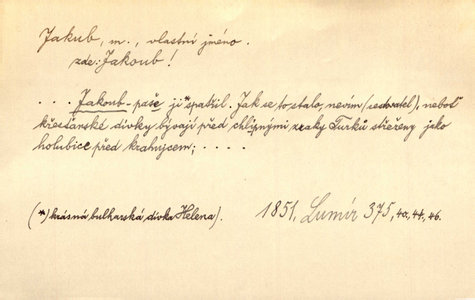 Jakub, m., vlastní jméno.
zde: Jakoub!
.... Jakoub-paše ji *) spatřil. Jak se to stalo, nevím (cestovatel), neboť
křesťanské dívky bývají před chlipnými zraky Turků střeženy jako
holubice před krahujcem; ....
(*) krásná bulharská dívka Helena). 1851, Lumír 375, 40, 44, 46.